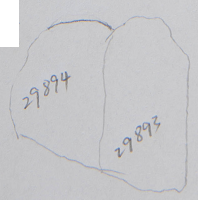 29894
29893